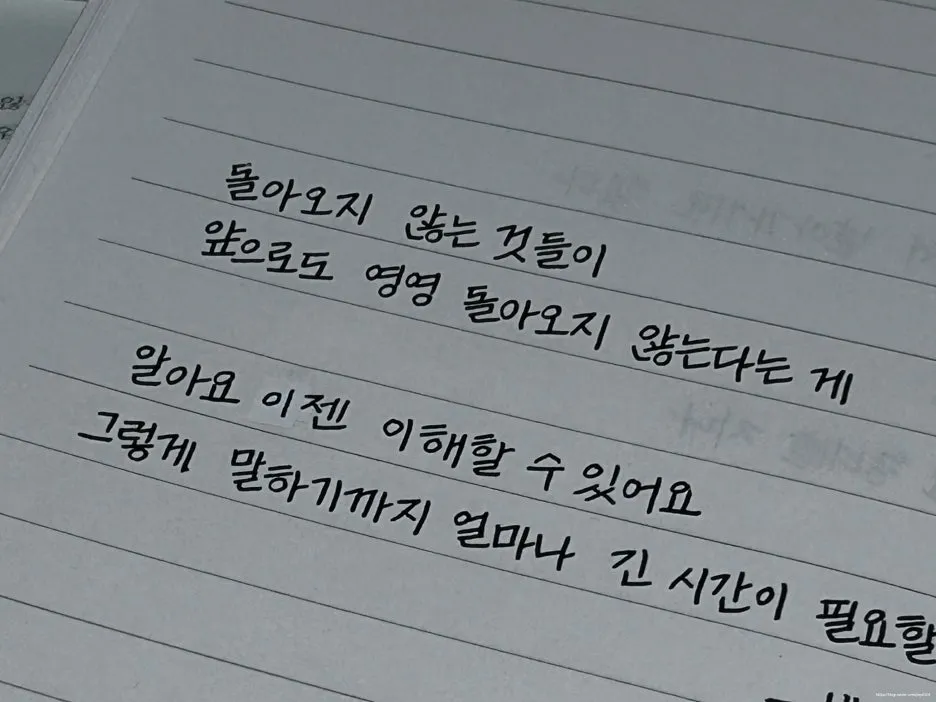 돌아오지 않는 것들이
앞으로도 영영 돌아오지 않는다는 게
알아요 이젠 이해할 수 있어요
그렇게 말하기까지 얼마나 긴 시간이 필요할